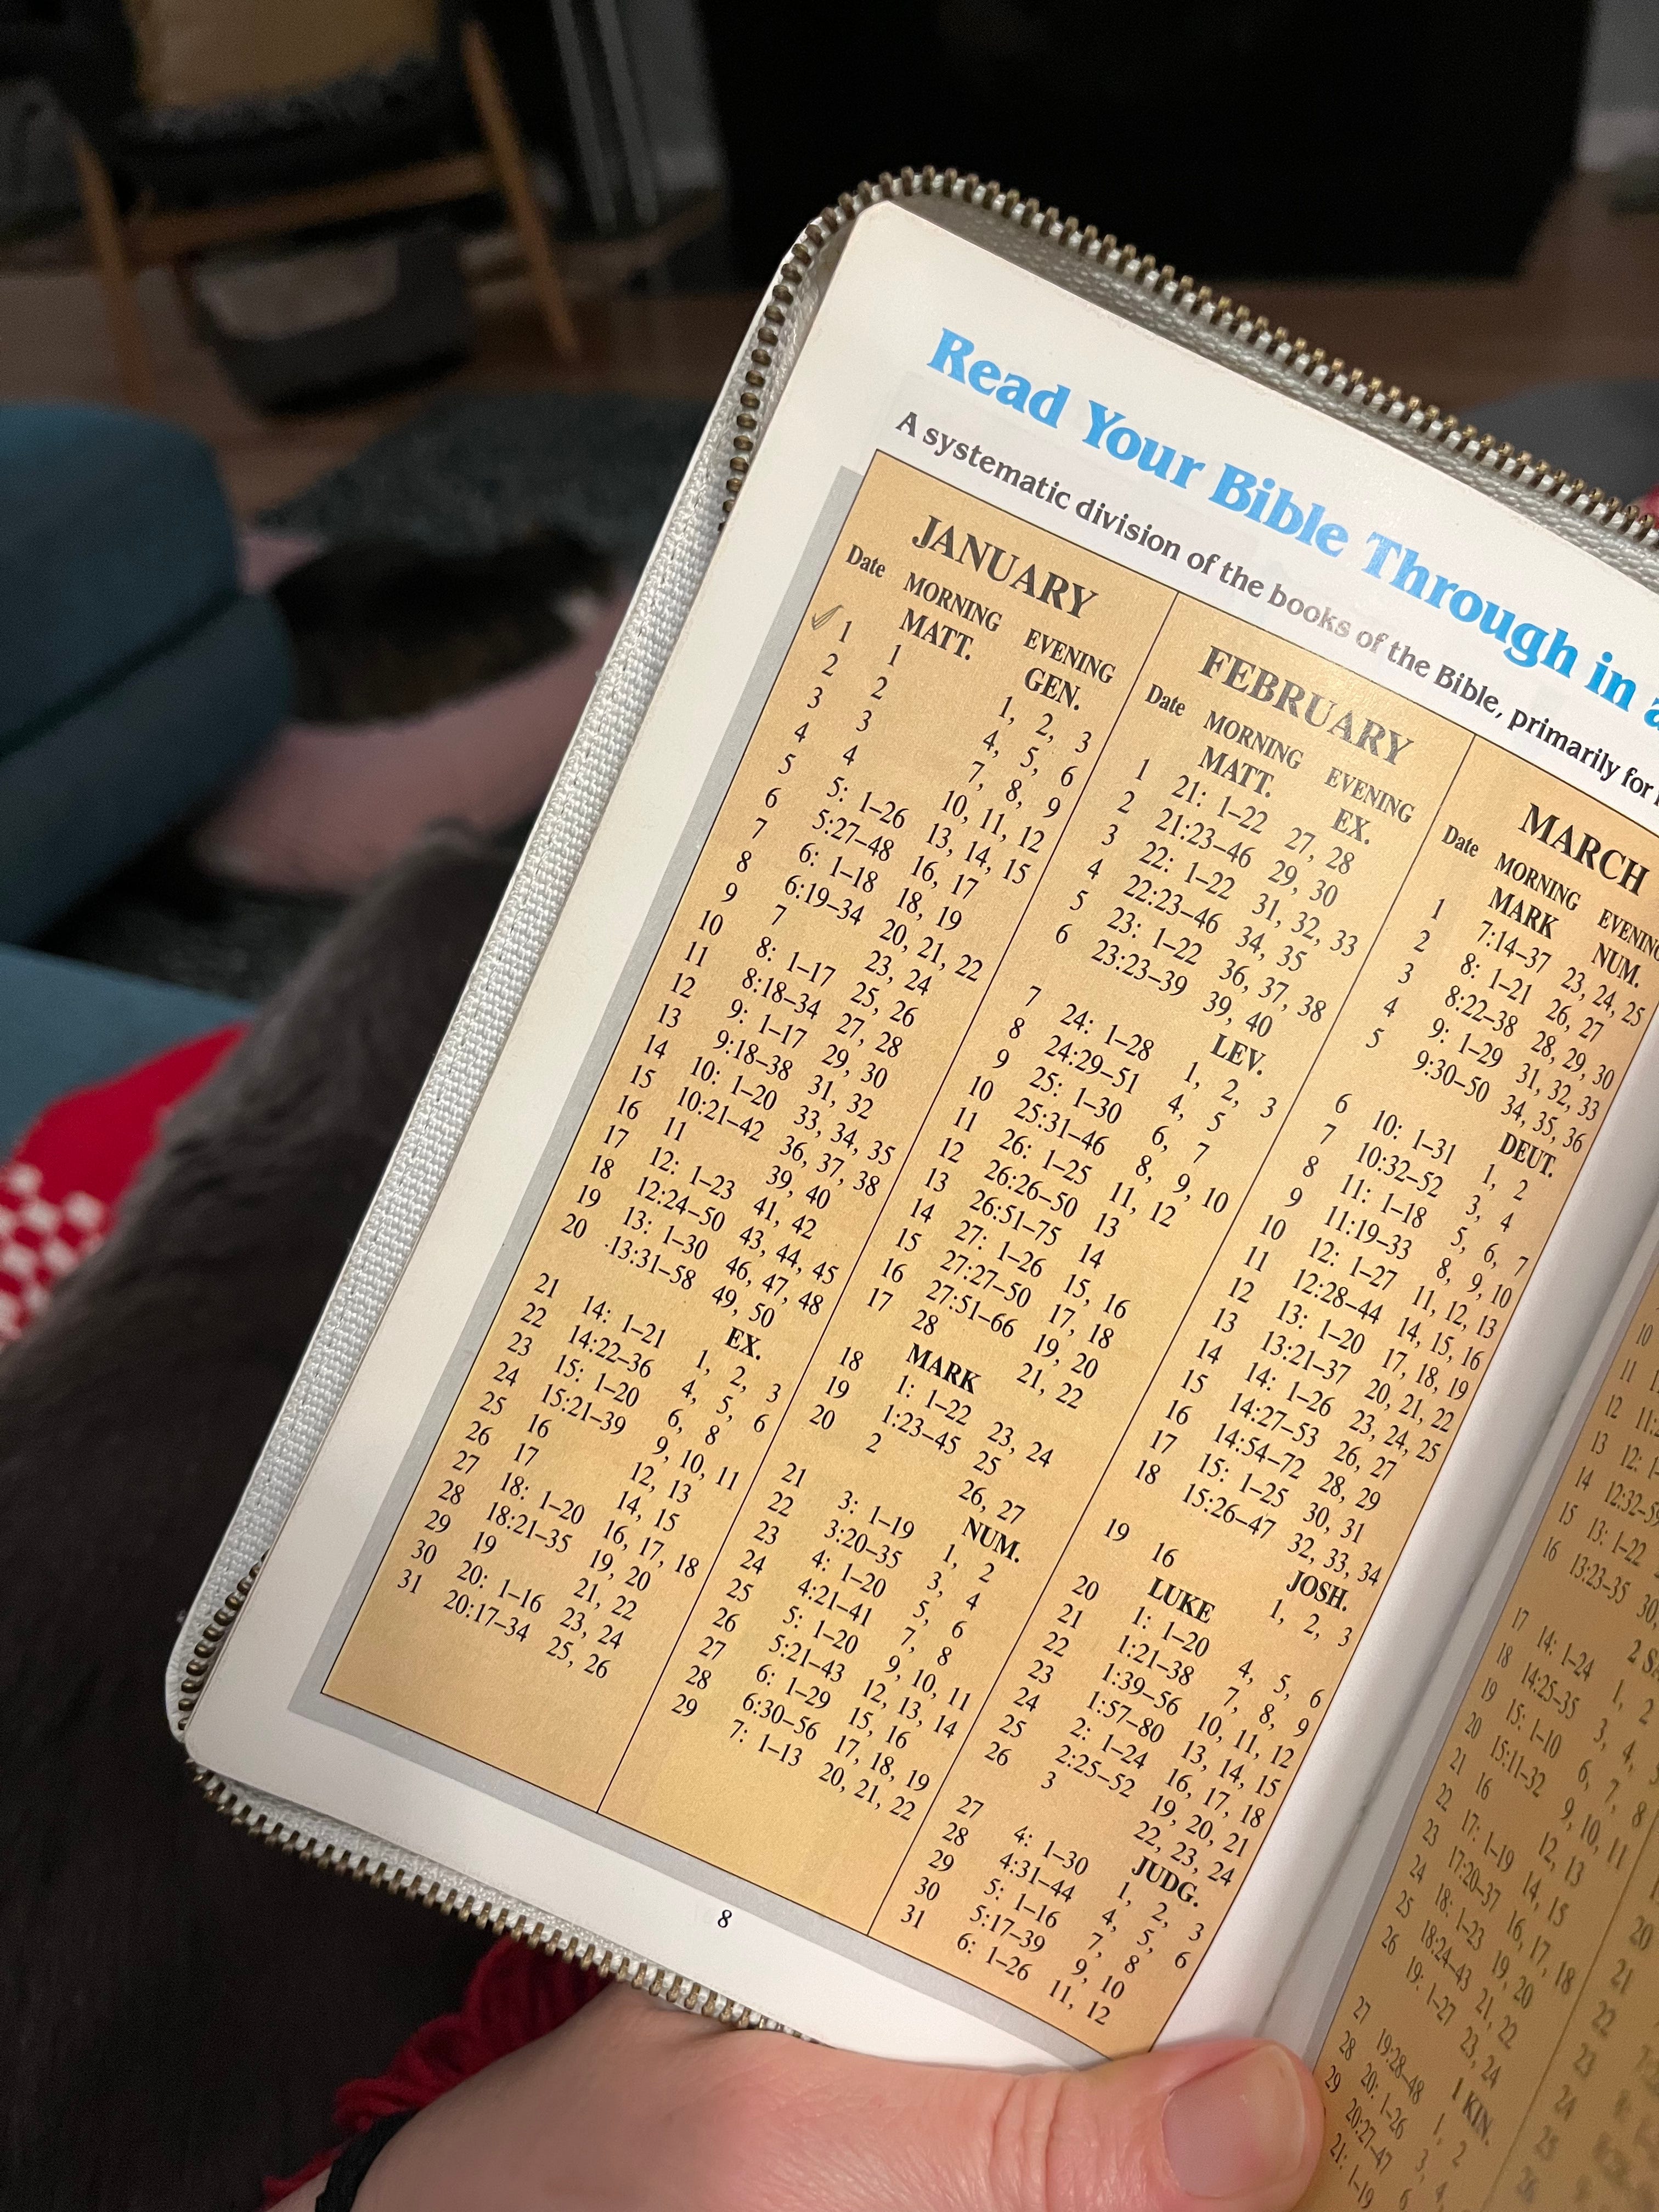 Read Your Bible Through in a
A systematic division of the books of the Bible, primarily for
JANUARY
Date MORNING EVENING
MATT. GEN.
1 1 1, 2, 3
2 2 4, 5, 6
3 3 7, 8, 9
4 4 10, 11, 12
5 5: 1–26 13, 14, 15
6 5:27–48 16, 17
7 6: 1–18 18, 19
8 6:19–34 20, 21, 22
9 7 23, 24
10 8: 1–17 25, 26
11 8:18–34 27, 28
12 9: 1–17 29, 30
13 9:18–38 31, 32
14 10: 1–20 33, 34, 35
15 10:21–42 36, 37, 38
16 11 39, 40
17 12: 1–23 41, 42
18 12:24–50 43, 44, 45
19 13: 1–30 46, 47, 48
20 13:31–58 49, 50
EX.
21 14: 1–21 1, 2, 3
22 14:22–36 4, 5, 6
23 15: 1–20 6, 8
24 15:21–39 9, 10, 11
25 16 12, 13
26 17 14, 15
27 18: 1–20 16, 17, 18
28 18:21–35 19, 20
29 19 21, 22
30 20: 1–16 23, 24
31 20:17–34 25, 26
FEBRUARY
Date MORNING EVENING
MATT. EX.
1 21: 1–22 27, 28
2 21:23–46 29, 30
3 22: 1–22 31, 32, 33
4 22:23–46 34, 35
5 23: 1–22 36, 37, 38
6 23:23–39 39, 40
LEV.
7 24: 1–28 1, 2, 3
8 24:29–51 4, 5
9 25: 1–30 6, 7
10 25:31–46 8, 9, 10
11 26: 1–25 11, 12
12 26:26–50 13
13 26:51–75 14
14 27: 1–26 15, 16
15 27:27–50 17, 18
16 27:51–66 19, 20
17 28 21, 22
MARK
18 1: 1–22 23, 24
19 1:23–45 25
20 2 26, 27
NUM.
21 3: 1–19 1, 2
22 3:20–35 3, 4
23 4: 1–20 5, 6
24 4:21–41 7, 8
25 5: 1–20 9, 10, 11
26 5:21–43 12, 13, 14
27 6: 1–29 15, 16
28 6:30–56 17, 18, 19
29 7: 1–13 20, 21, 22
MARCH
Date MORNING EVENING
MARK NUM.
1 7:14–37 23, 24, 25
2 8: 1–21 26, 27
3 8:22–38 28, 29, 30
4 9: 1–29 31, 32, 33
5 9:30–50 34, 35, 36
DEUT.
6 10: 1–31 1, 2
7 10:32–52 3, 4
8 11: 1–18 5, 6, 7
9 11:19–33 8, 9, 10
10 12: 1–27 11, 12, 13
11 12:28–44 14, 15, 16
12 13: 1–20 17, 18, 19
13 13:21–37 20, 21, 22
14 14: 1–26 23, 24, 25
15 14:27–53 26, 27
16 14:54–72 28, 29
17 15: 1–25 30, 31
18 15:26–47 32, 33, 34
JOSH.
19 16 1, 2, 3
LUKE
20 1: 1–20 4, 5, 6
21 1:21–38 7, 8, 9
22 1:39–56 10, 11, 12
23 1:57–80 13, 14, 15
24 2: 1–24 16, 17, 18
25 2:25–52 19, 20, 21
26 3 22, 23, 24
JUDG.
27 4: 1–30 1, 2, 3
28 4:31–44 4, 5, 6
29 5: 1–16 7, 8
30 5:17–39 9, 10
31 6: 1–26 11, 12
8
10
11
12
13 12:
14 12:32–59
15 13: 1–22
16 13:23–35 30,
17 14: 1–24 1, 2
18 14:25–35 3, 4,
19 15: 1–10 6, 7, 8
20 15:11–32 9, 10, 11
21 16 12, 13
22 17: 1–19 14, 15
23 17:20–37 16, 17, 18
24 18: 1–23 19, 20
25 18:24–43 21, 22
26 19: 1–27 23, 24
1 KIN.
27 19:28–48 1, 2
28 20: 1–26 3, 4
29 20:27–47
21: 1–19
20
21
22
23
24
25
26